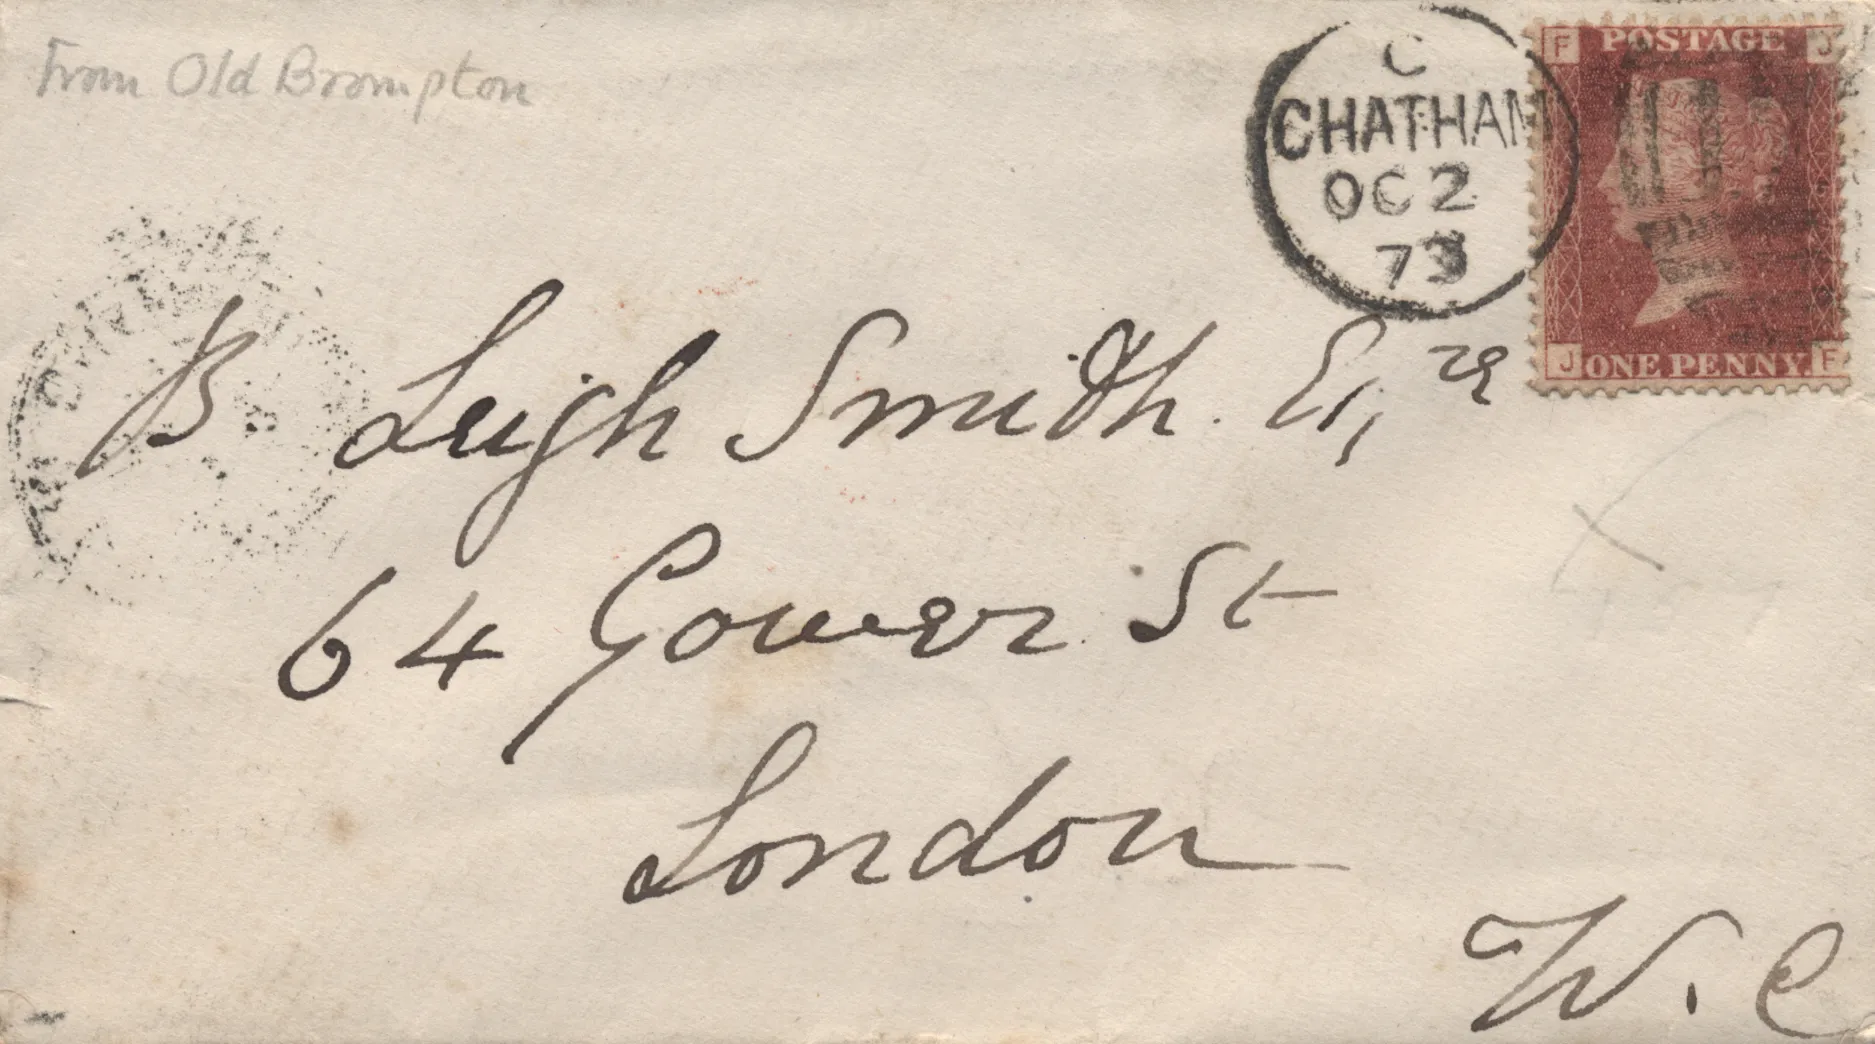 From Old Brompton
C
CHATHAM
OC 2
73
F POSTAGE J
J ONE PENNY F
B. Leigh Smith. Esqre
64 Gower St
London
W. C